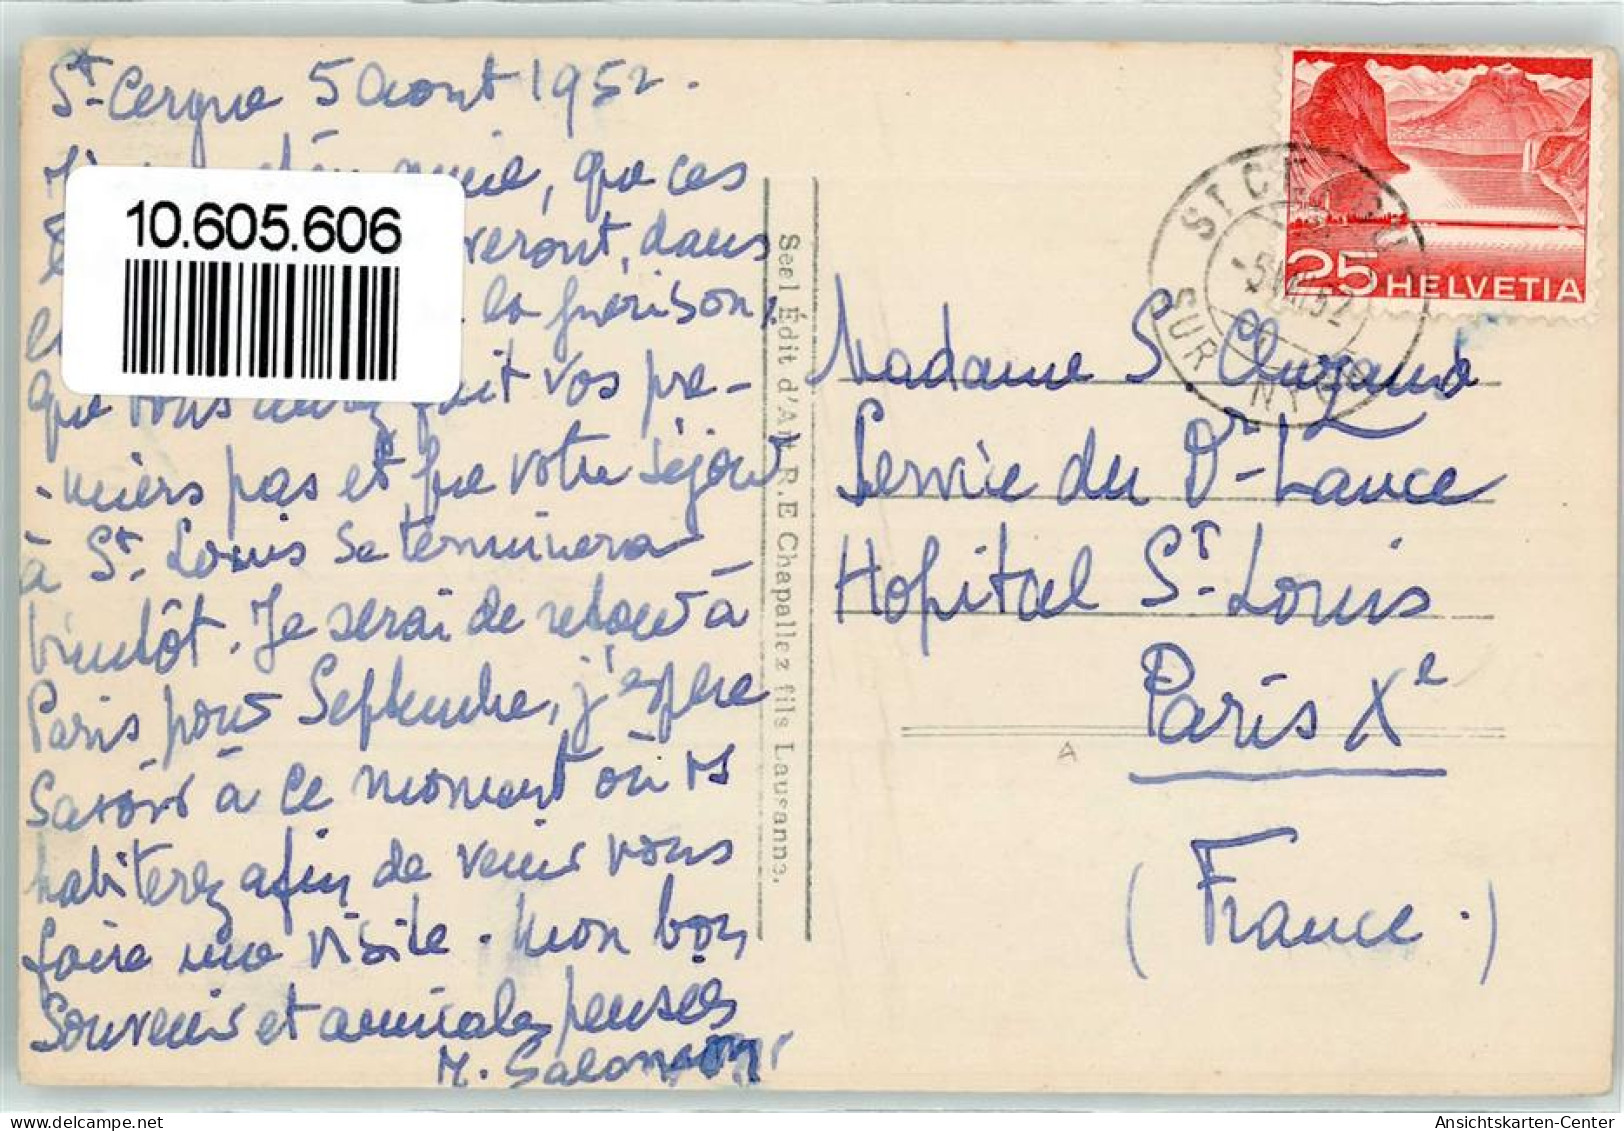 St-Cergue 5 Aout 1952.
amie, que ces
veront, dans
la guérison,
que vous aurez fait vos pre-
-miers pas et que votre séjour
à St. Louis se terminera
bientôt. Je serai de retour à
Paris pour Septembre, j'espère
savoir à ce moment où vs
habiterez afin de venir vous
faire une visite. Mon bon
Souvenir et amicales pensées
M. Salomon
10.605.606
Seal Édit d'Art R.E Chapallaz fils Lausanne.
HELVETIA
25
ST CERGUE
SUR NYON
-5.VIII.52
Madame S
Service du Dr Lance
Hopital St-Louis
Paris Xe
(France.)
A
Ansichtskarten-Center